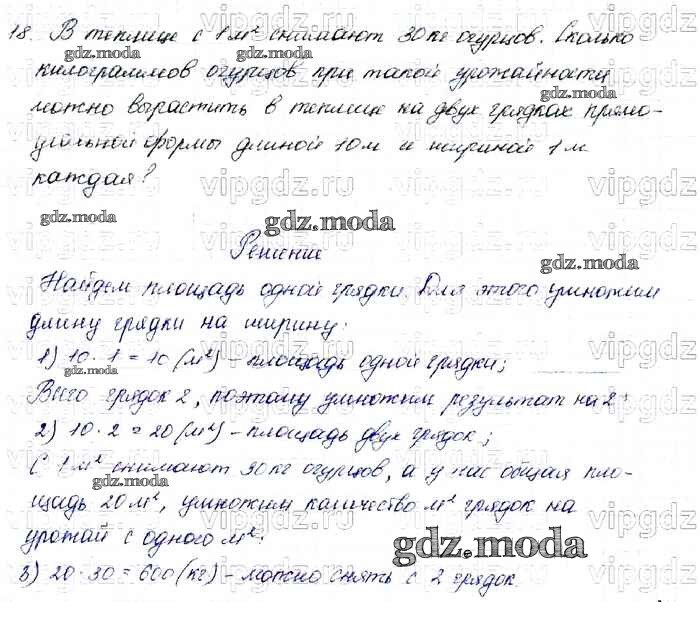 18. В теплице с 1 м² снимают 30 кг огурцов. Сколько
килограммов огурцов при такой урожайности
можно вырастить в теплице на двух грядках прямо-
угольной формы длиной 10 м и шириной 1 м
каждая?
Решение
Найдем площадь одной грядки. Для этого умножим
длину грядки на ширину:
1) 10 · 1 = 10 (м²) - площадь одной грядки;
Всего грядок 2, поэтому умножим результат на 2:
2) 10 · 2 = 20 (м²) - площадь двух грядок;
С 1 м² снимают 30 кг огурцов, а у нас общая пло-
щадь 20 м², умножим количество м² грядок на
урожай с одного м²:
3) 20 · 30 = 600 (кг) - можно снять с 2 грядок.
gdz.moda
vipgdz.ru